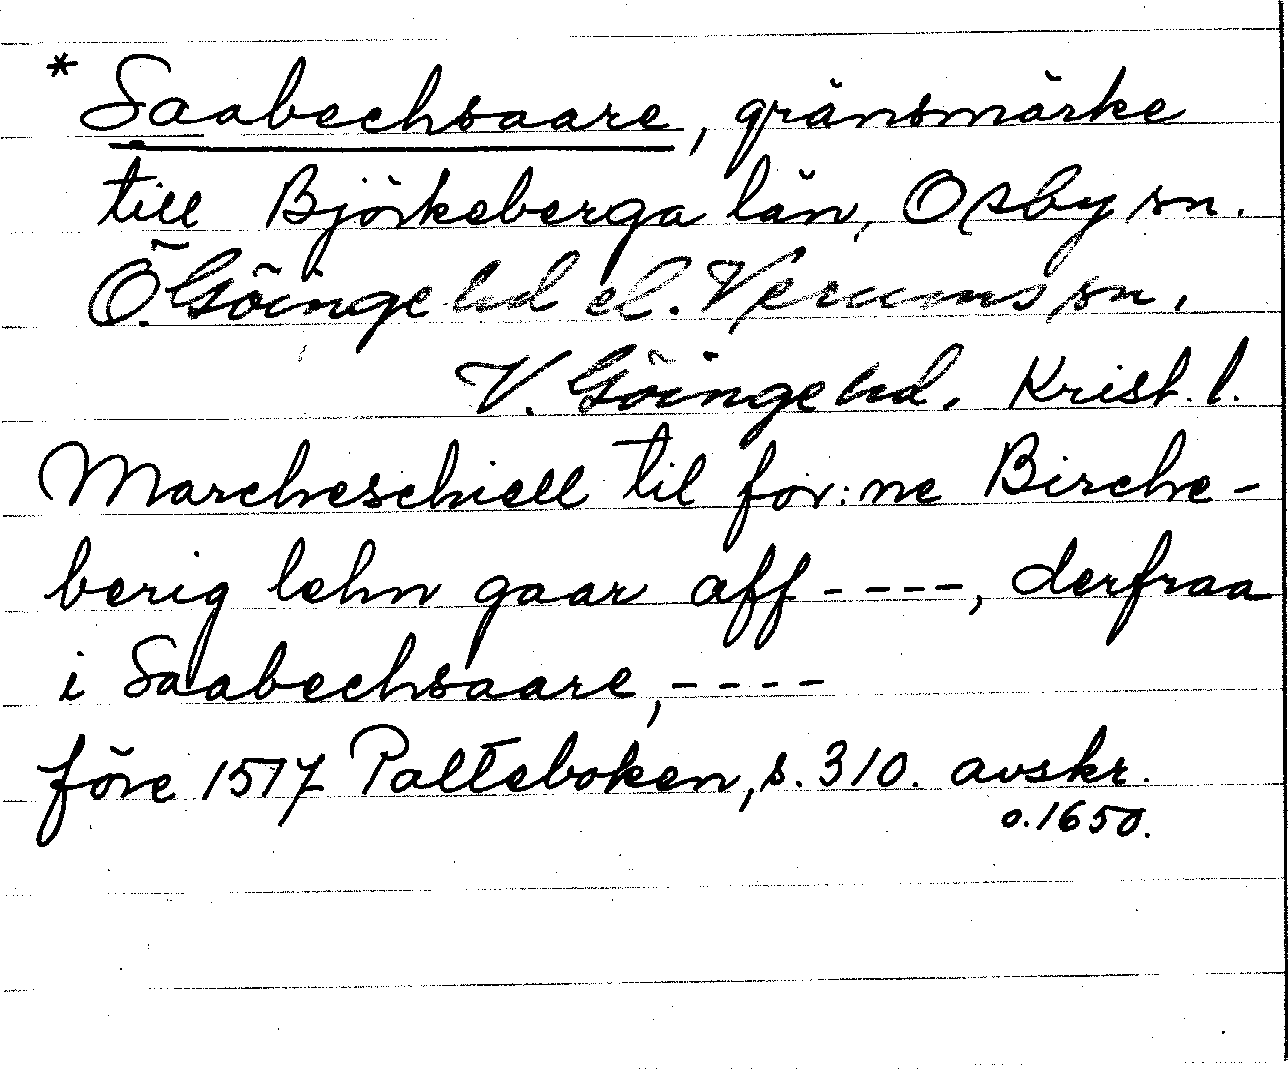 * Saabechsaare, gränsmärke
till Björkeberga län, Osby sn.
Ö. Göinge hd el. Verums sn.
V. Göinge hd. Krist. l.
Marcheschiell til for:ne Birche-
berig lehn gaar aff ----, derfraa
i Saabechsaare, ----
före 1517 Palteboken, s. 310. avskr.
o. 1650.